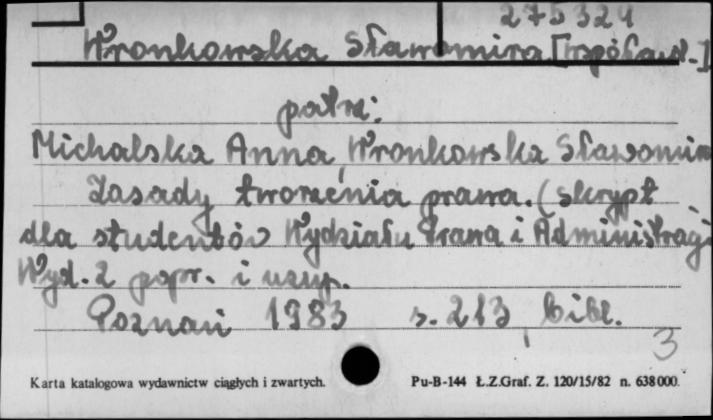 275324
Wronkowska Sławomira [współaut.]
patrz:
Michalska Anna, Wronkowska Sławomira
Zasady tworzenia prawa. (Skrypt
dla studentów Wydziału Prawa i Administracji
Wyd. 2 popr. i uzup.
Poznań 1983 s. 213, bibl.
3
Karta katalogowa wydawnictw ciągłych i zwartych. Pu-B-144 Ł.Z.Graf. Z. 120/15/82 n. 638000.